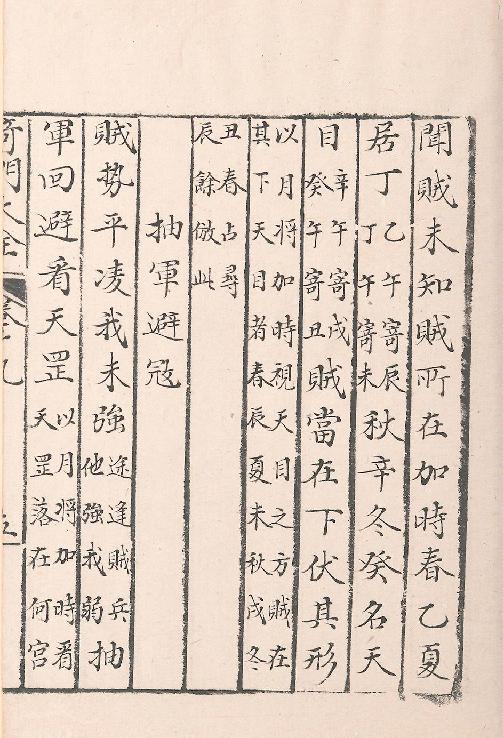 聞賊未知賊所在加時春乙夏
居丁乙午寄辰丁午寄未秋辛冬癸名天
目辛午寄戌癸午寄丑賊當在下伏其形
以月將加時視天目之方賊在
其下天目者春辰夏未秋戌冬
丑春占尋
辰餘倣此
抽軍避冦
賊势平凌我未強途逢賊兵他強我弱抽
軍回避看天罡以月將加時看天罡落在何宮
奇門大全